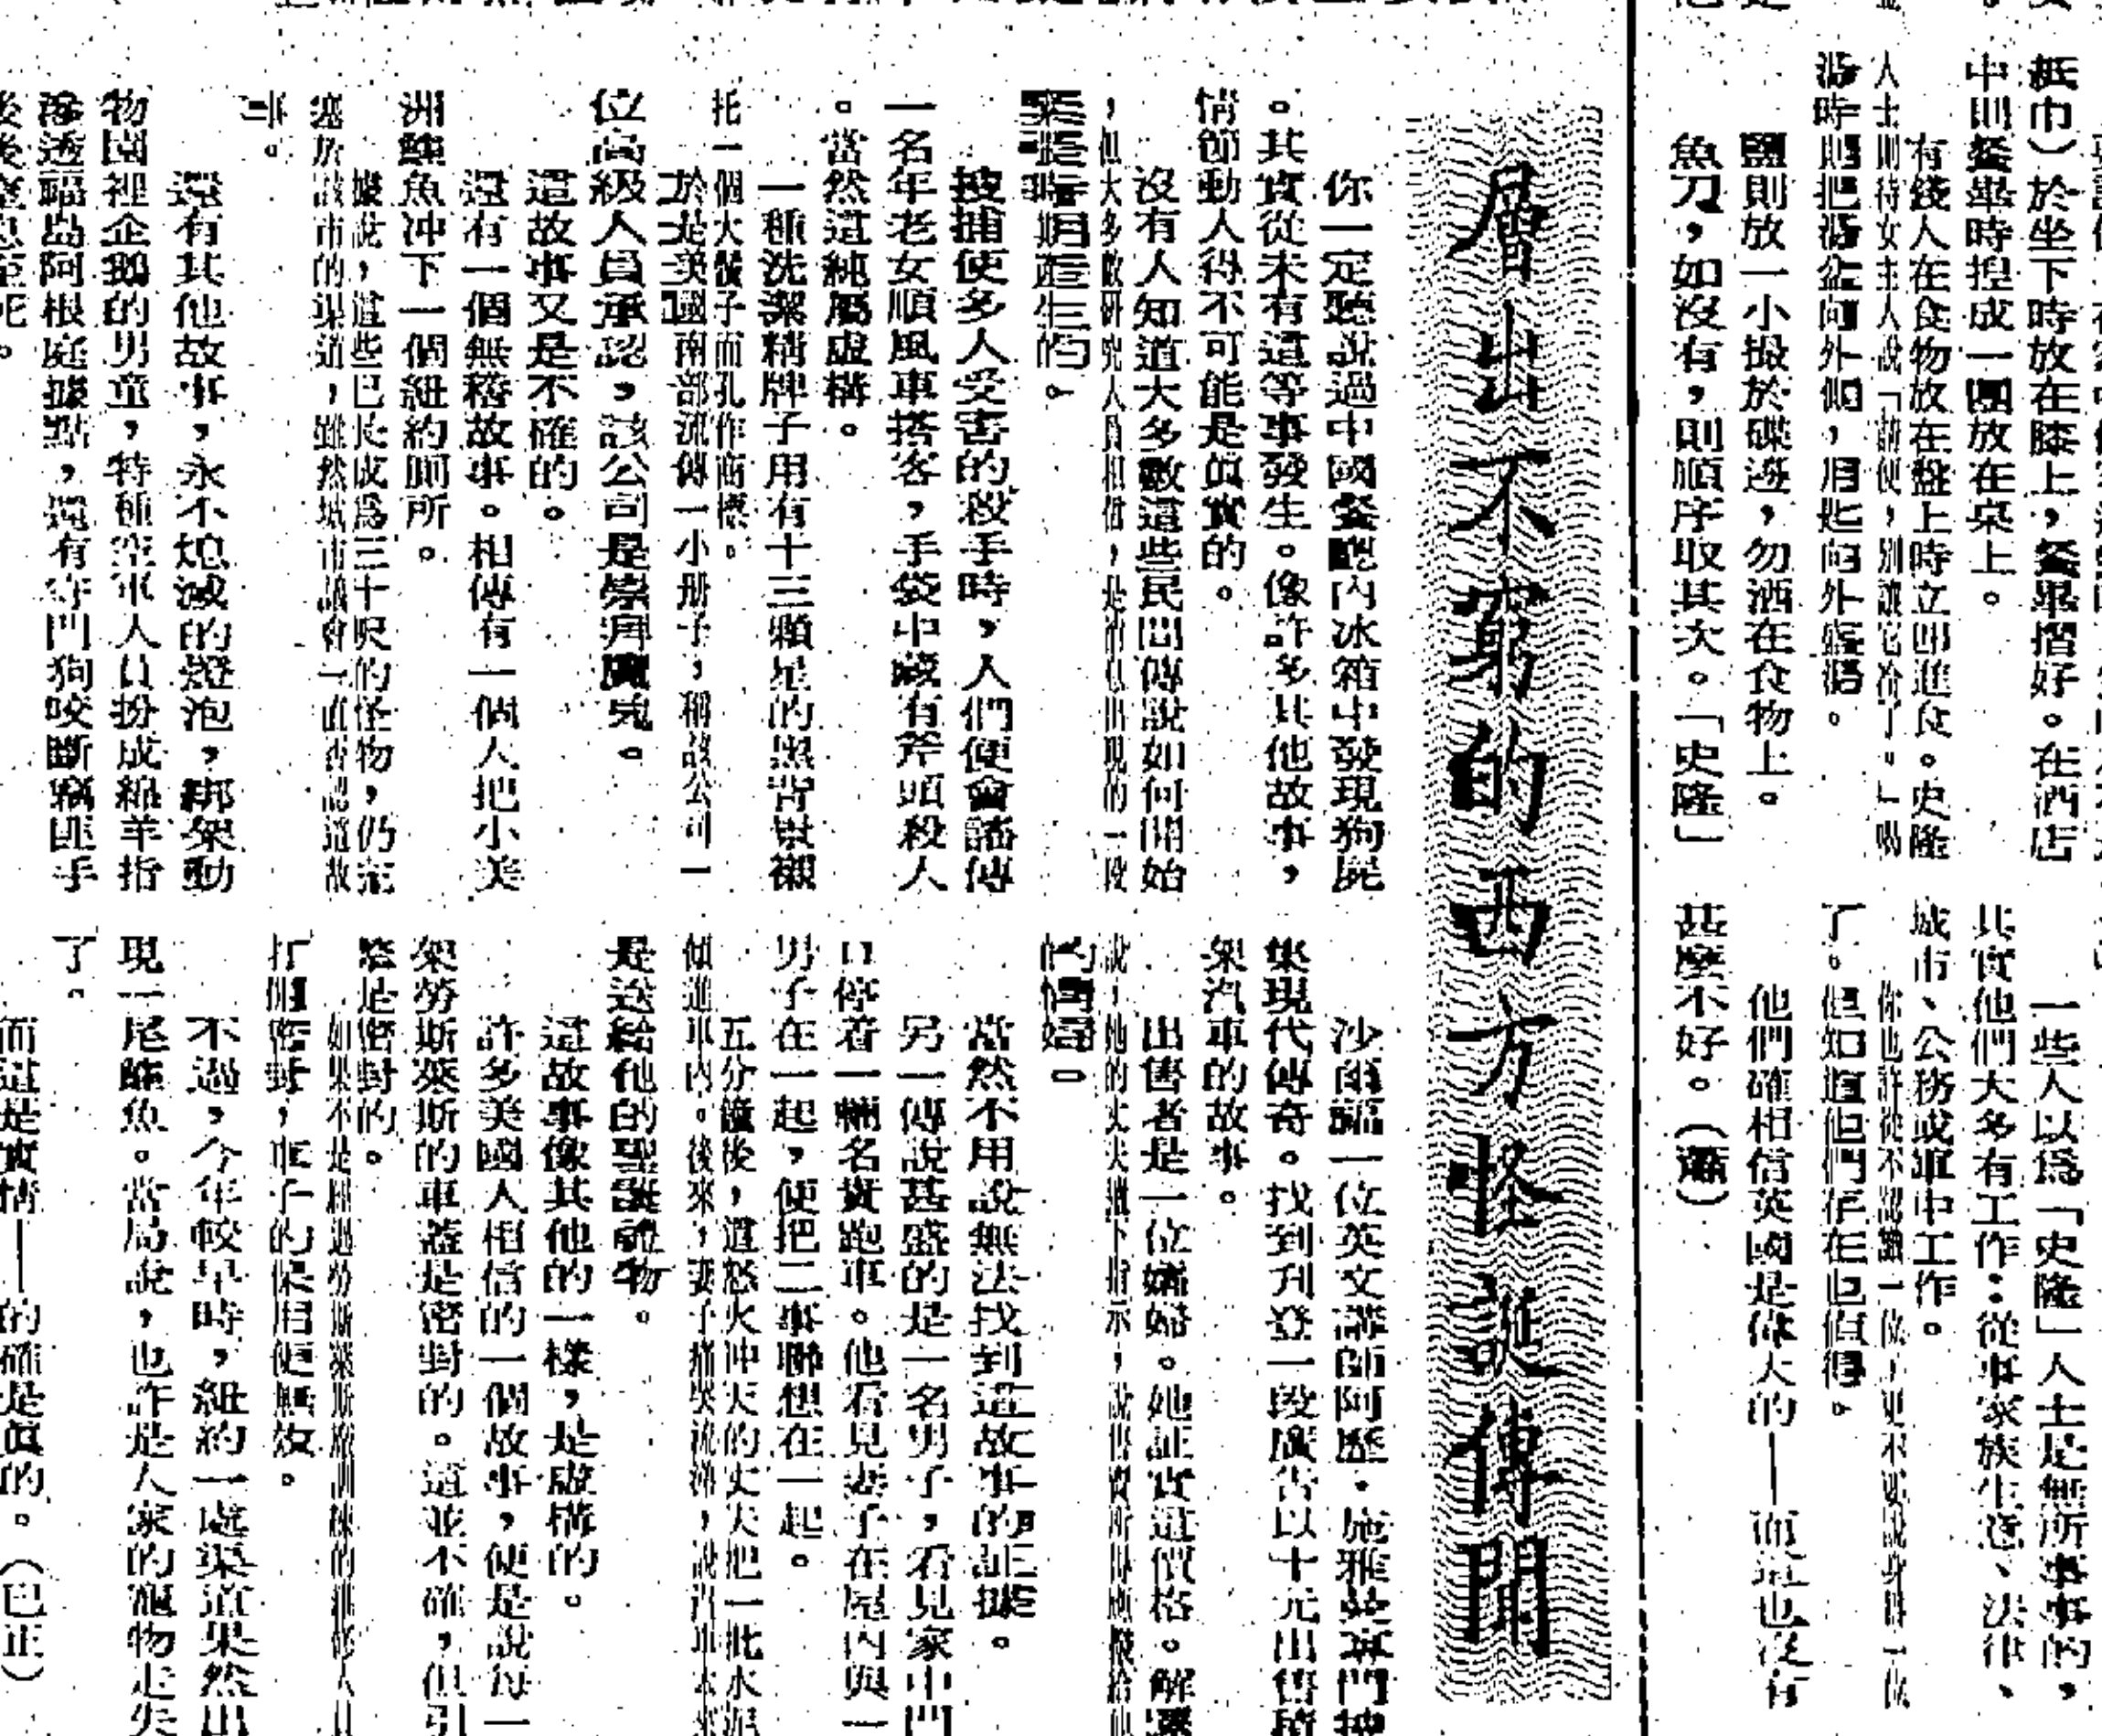 紙巾）於坐下時放在膝上，餐畢摺好。在酒店
中則餐畢時捏成一團放在桌上。
有錢人在食物放在盤上時立即進食。史隆
人士則待女主人說「請便，別讓它冷了。」喝
湯時則把湯盆向外側，用匙向外盛湯。
鹽則放一小撮於碟邊，勿洒在食物上。
魚刀，如沒有，則順序取其次。「史隆」
一些人以為「史隆」人士是無所事事的，
其實他們大多有工作：從事家族生意、法律、
城市、公務或軍中工作。
你也許從不認識一位，更不要說身為一位
了。但知道他們存在也值得。
他們確相信英國是偉大的——而這也沒有
甚麼不好。（蕭）
層出不窮的西方怪誕傳聞
你一定聽說過中國餐館內冰箱中發現狗屍
。其實從未有這等事發生。像許多其他故事，
情節動人得不可能是真實的。
沒有人知道大多數這些民間傳說如何開始
，但大多數研究人員相信，是消息出現的一段
時期產生的。
搜捕使多人受害的殺手時，人們便會謠傳
一名年老女順風車搭客，手袋中藏有斧頭殺人
。當然這純屬虛構。
一種洗潔精牌子用有十三顆星的黑背景襯
托一個大鬍子面孔作商標。
於是美國南部流傳一小册子，稱該公司一
位高級人員承認，該公司是崇拜魔鬼。
這故事又是不確的。
還有一個無稽故事。相傳有一個人把小美
洲鱷魚冲下一個紐約厠所。
據說，這些已長成為三十呎的怪物，仍充
塞於該市的渠道，雖然城市議會一直否認這故
事。
還有其他故事，永不熄滅的燈泡，綁架動
物園裡企鵝的男童，特種空軍人員扮成綿羊指
滲透福島阿根庭據點，還有守門狗咬斷竊匪手
沙爾福一位英文講師阿歷·施雅英專門搜
集現代傳奇。找到刋登一段廣告以十元出售積
架汽車的故事。
出售者是一位孀婦。她証實這價格。解釋
說，他的丈夫遺下指示，說出賣所得應撥給他
的情婦。
當然不用說無法找到這故事的証據。
另一傳說甚盛的是一名男子，看見家中門
口停着一輛名貴跑車。他看見妻子在屋內與一
男子在一起，便把二事聯想在一起。
五分鐘後，這怒火冲天的丈夫把一批水泥
傾進車內。後來，妻子痛哭流涕，說着車本來
是送給他的聖誕禮物。
這故事像其他的一樣，是虛構的。
許多美國人相信的一個故事，便是說每一
架勞斯萊斯的車蓋是密封的。這並不確，但引
擎是密封的。
如果不是經過勞斯萊斯廠訓練的維修人員
打開密封，車子的保用便無效。
不過，今年較早時，紐約一處渠道果然出
現一尾鱷魚。當局說，也許是人家的寵物走失
了。
而這是實情——的確是真的。（巴正）